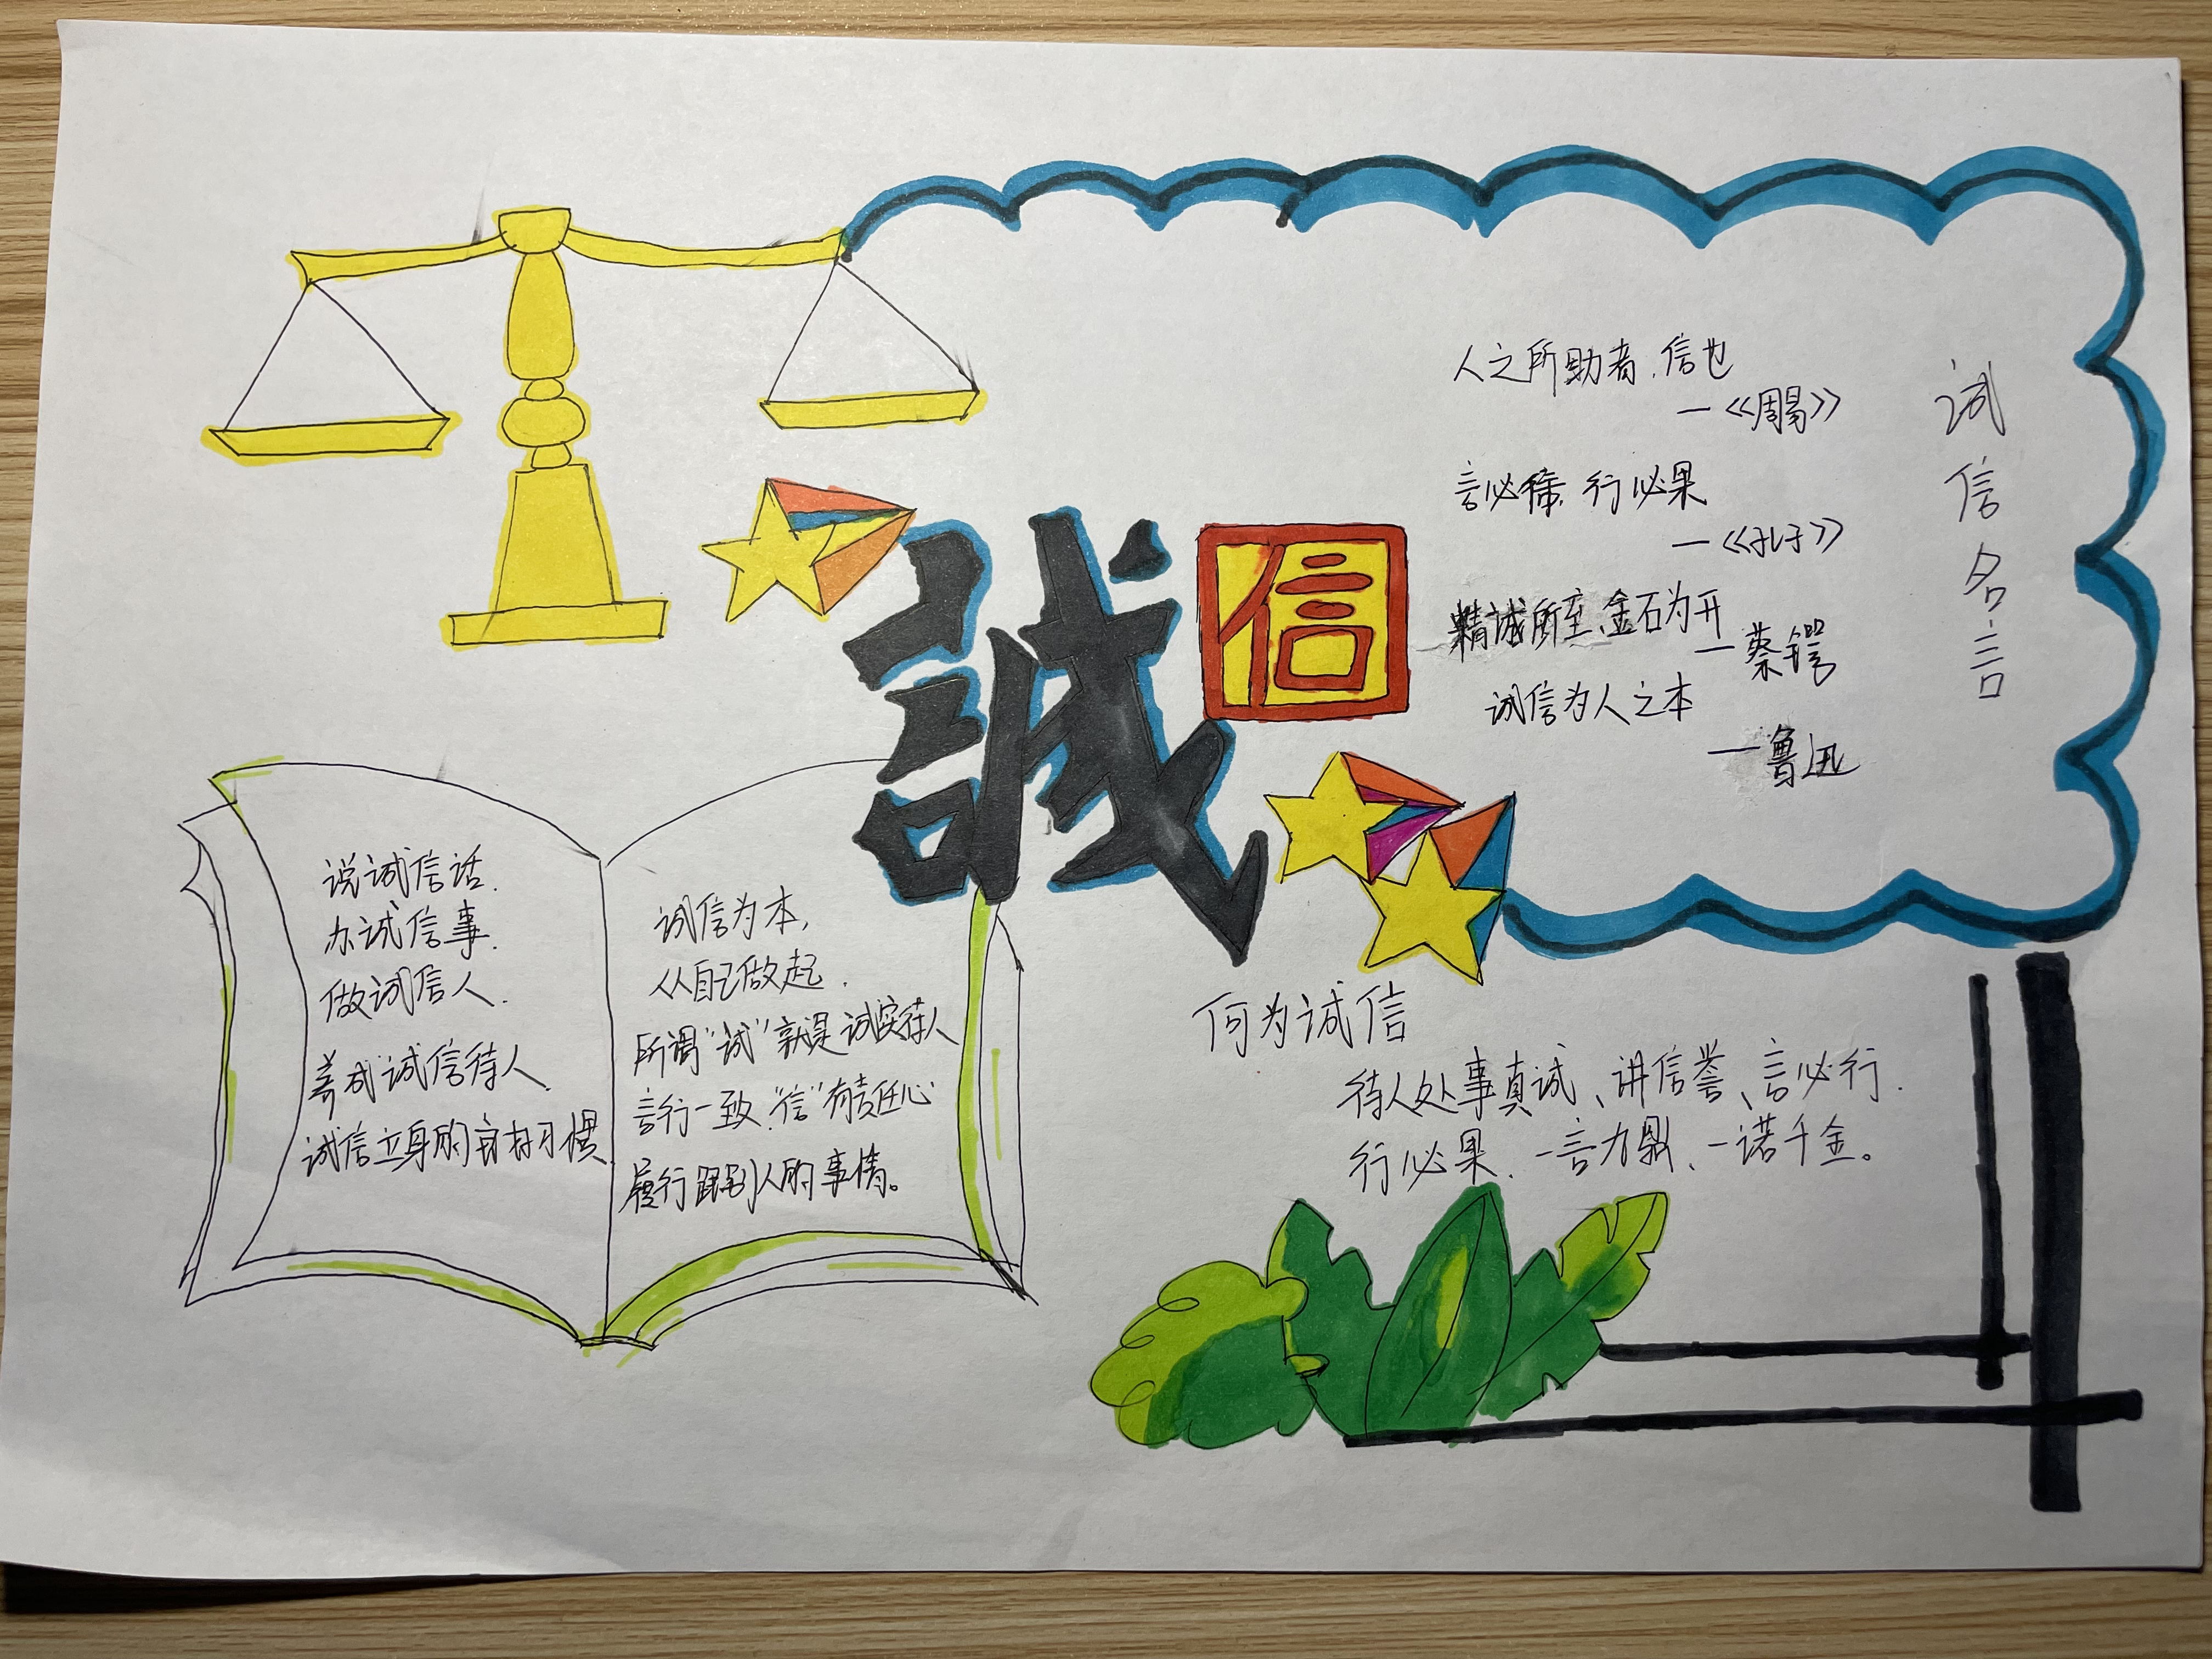 誠信
诚信名言
人之所助者.信也
—《周易》
言必信,行必果
—《孔子》
精诚所至、金石为开
—蔡锷
诚信为人之本
—鲁迅
说诚信话.
办诚信事.
做诚信人.
养成诚信待人.
诚信立身的良好习惯
诚信为本,
从自己做起.
所谓“诚”就是诚实待人
言行一致.“信”有责任心
履行跟别人的事情。
何为诚信
待人处事真诚、讲信誉、言必行.
行必果、一言九鼎、一诺千金。